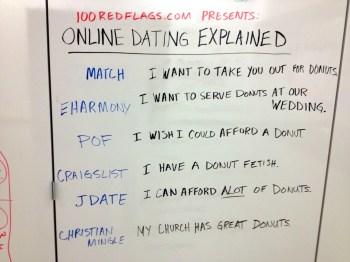 100REDFLAGS.COM PRESENTS:
ONLINE DATING EXPLAINED
MATCH I WANT TO TAKE YOU OUT FOR DONUTS.
EHARMONY I WANT TO SERVE DONUTS AT OUR
WEDDING.
POF I WISH I COULD AFFORD A DONUT
CRAIGSLIST I HAVE A DONUT FETISH.
JDATE I CAN AFFORD ALOT OF DONUTS.
CHRISTIAN MY CHURCH HAS GREAT DONUTS.
MINGLE